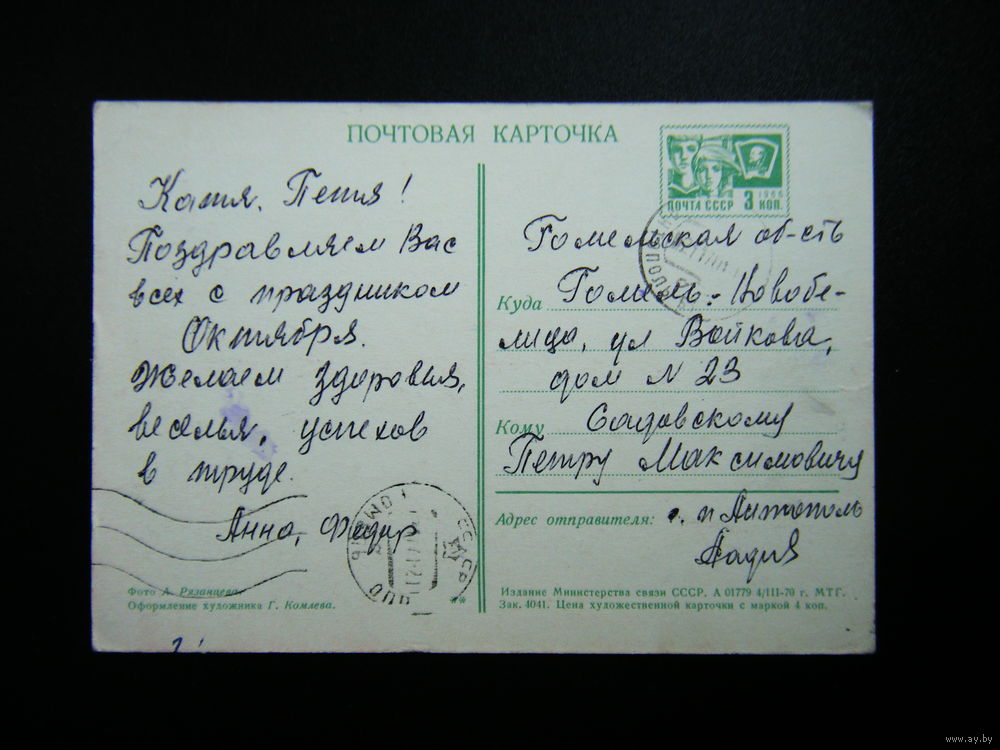 ПОЧТОВАЯ КАРТОЧКА
Катя, Петя!
Поздравляем Вас
всех с праздником
Октября.
Желаем здоровья,
веселья, успехов
в труде.
Анна, Федир
Фото А. Рязанцева.
Оформление художника Г. Комлева.
1966
ПОЧТА СССР 3 КОП.
Гомельская об-сть
Куда Гомель-Новобе-
лица, ул Войкова,
дом N 23
Кому Садовскому
Петру Максимовичу
Адрес отправителя: с. п Антополь
Издание Министерства связи СССР. А 01779 4/III-70 г. МТГ.
Зак. 4041. Цена художественной карточки с маркой 4 коп.
ГОМЕЛЬ
**
www.ay.by